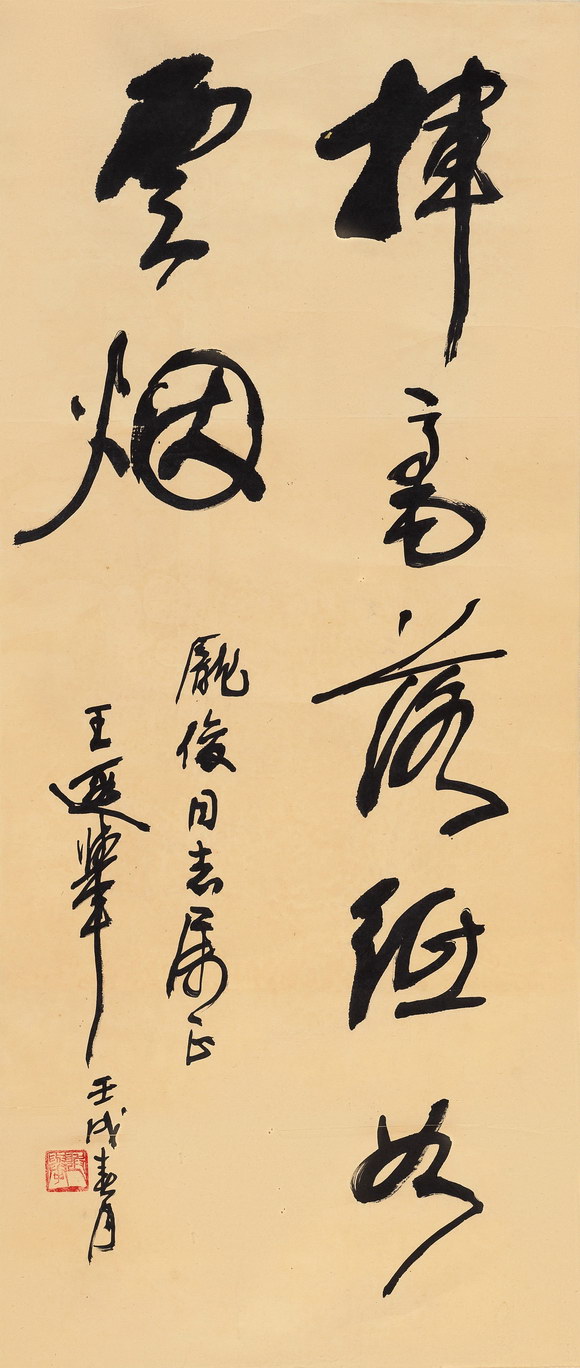 揮毫落紙如
雲烟
龐俊同志属正
王遐舉 壬戌春月